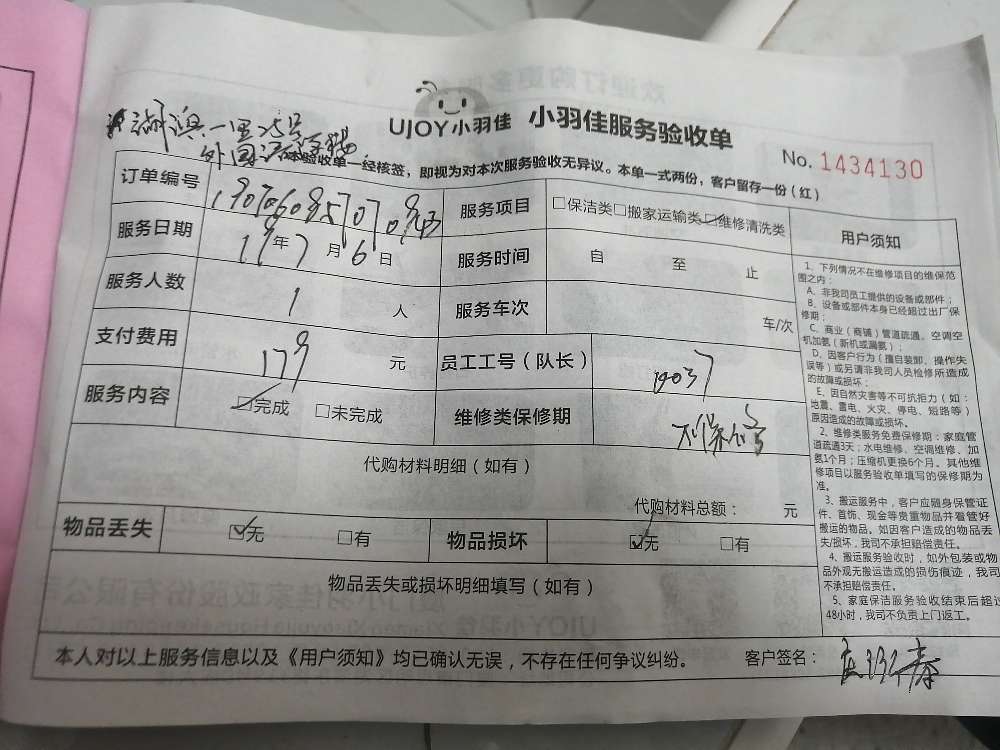 UJOY小羽佳 小羽佳服务验收单
No. 1434130
本验收单一经核签，即视为对本次服务验收无异议。本单一式两份，客户留存一份（红）
订单编号
服务项目 □保洁类□搬家运输类☑维修清洗类
服务日期 19年7月6日
服务时间 自 至 止
服务人数 1 人
服务车次 车/次
支付费用 179 元
员工工号（队长） 14037
服务内容 ☑完成 □未完成
维修类保修期 不保修
代购材料明细（如有）
代购材料总额： 元
物品丢失 ☑无 □有
物品损坏 ☑无 □有
物品丢失或损坏明细填写（如有）
用户须知
1、下列情况不在维修项目的维保范
围之内：
A、非我司员工提供的设备或部件；
B、设备或部件本身已经超过出厂保
修期；
C、商业（商铺）管道疏通、空调空
机加氨（新机或漏氨）；
D、因客户行为（擅自装卸、操作失
误等）或另请非我司人员检修所造成
的故障或损坏；
E、因自然灾害等不可抗拒力（如：
地震、雷电、火灾、停电、短路等）
原因造成的故障或损坏。
2、维修类服务免费保修期：家庭管
道疏通3天；水电维修、空调维修、加
氨1个月；压缩机更换6个月。其他维
修项目以服务验收单填写的保修期为
准。
3、搬运服务中，客户应随身保管证
件、首饰、现金等贵重物品并看管好
搬运的物品。如因客户造成的物品丢
失/损坏，我司不承担赔偿责任。
4、搬运服务验收时，如外包装或物
品外观无搬运造成的损伤痕迹，我司
不承担赔偿责任。
5、家庭保洁服务验收结束后超过
48小时，我司不负责上门返工。
本人对以上服务信息以及《用户须知》均已确认无误，不存在任何争议纠纷。 客户签名：